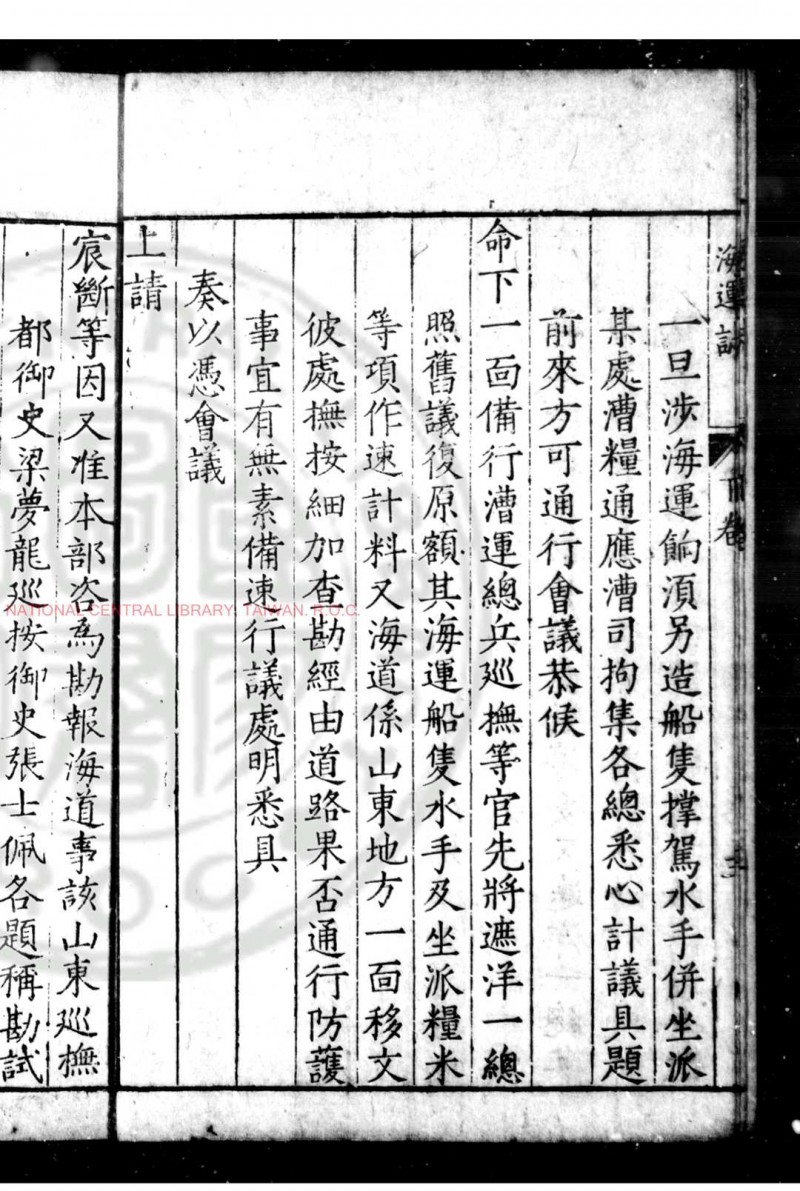 海運誌
下卷
一旦涉海運餉須另造船隻撐駕水手併坐派
某處漕糧通應漕司拘集各總悉心計議具題
前來方可通行會議恭候
命下一面備行漕運總兵巡撫等官先將遮洋一總
照舊議復原額其海運船隻水手及坐派糧米
等項作速計料又海道係山東地方一面移文
彼處撫按細加查勘經由道路果否通行防護
事宜有無素備速行議處明悉具
奏以憑會議
上請
宸斷等因又准本部咨為勘報海道事該山東巡撫
都御史梁夢龍巡按御史張士佩各題稱勘試
NATIONAL CENTRAL LIBRARY, TAIWAN. R.O.C.